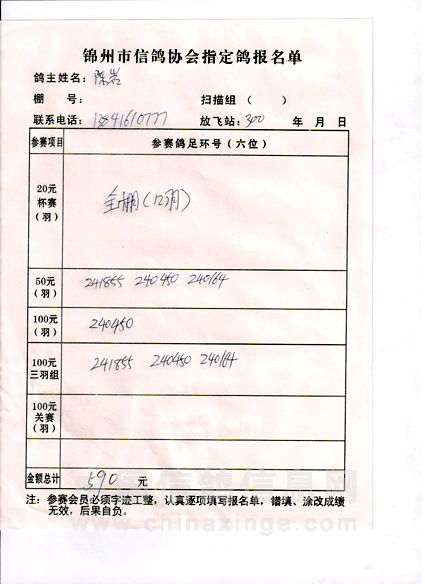 锦州市信鸽协会指定鸽报名单
鸽主姓名: 陈岩
棚 号: 扫描组 ( )
联系电话: 13841610777 放飞站: 300 年 月 日
参赛项目 参赛鸽足环号(六位)
20元
杯赛
(羽)
全棚(12羽)
50元
(羽)
241855 240450 240164
100元
(羽)
240450
100元
三羽组
241855 240450 240164
100元
关赛
(羽)
金额总计 590 元
注: 参赛会员必须字迹工整,认真逐项填写报名单,错填、涂改成绩
无效,后果自负。
www.chinaxinge.com